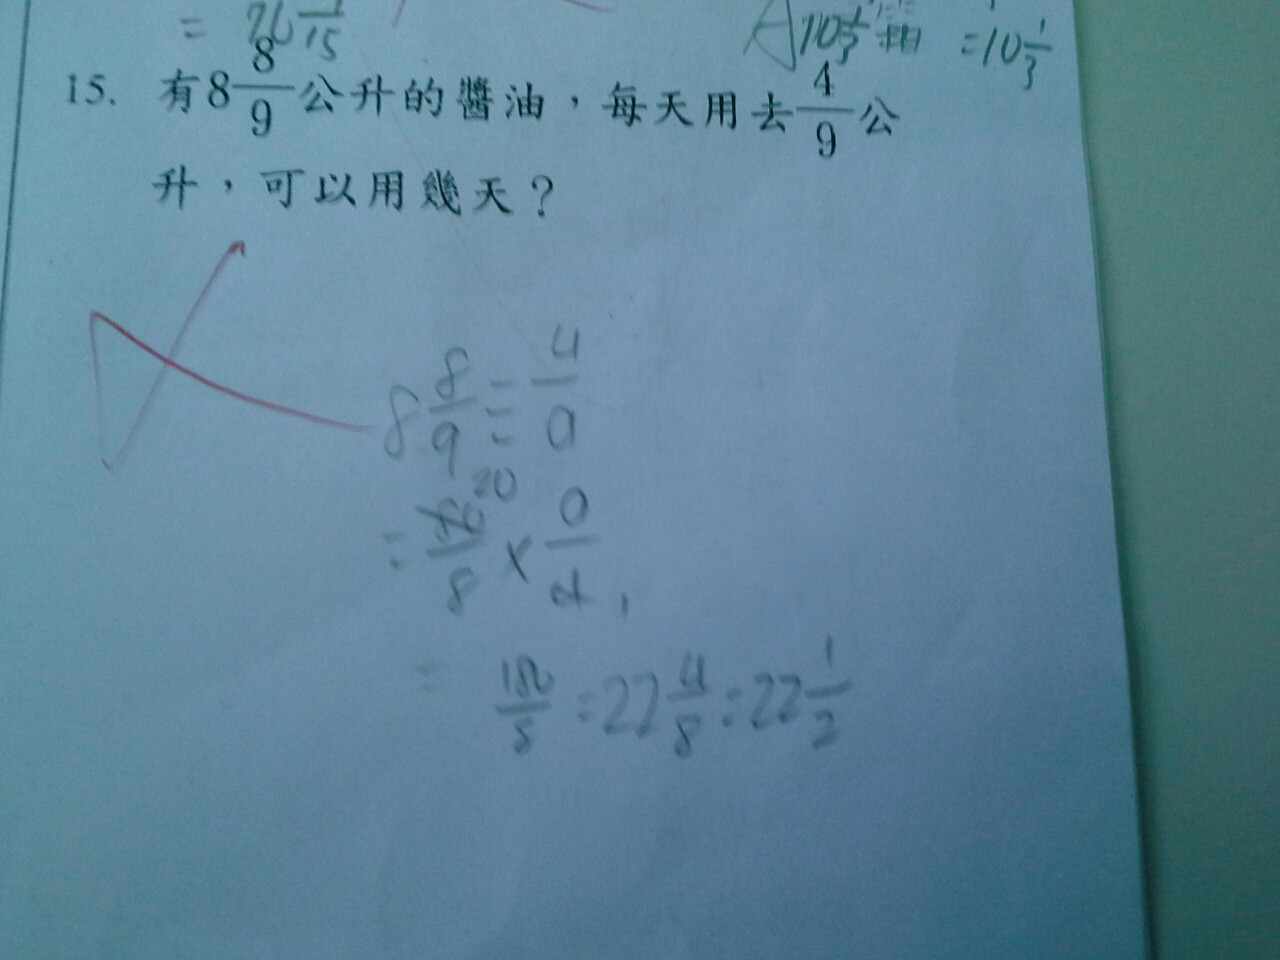 = 26 1/15 10 1/3 = 10 1/3
15. 有8 8/9公升的醬油，每天用去4/9公
升，可以用幾天？
8 8/9 ÷ 4/9
= 80/8 20 × 9/4 1
= 180/8 = 22 4/8 = 22 1/2